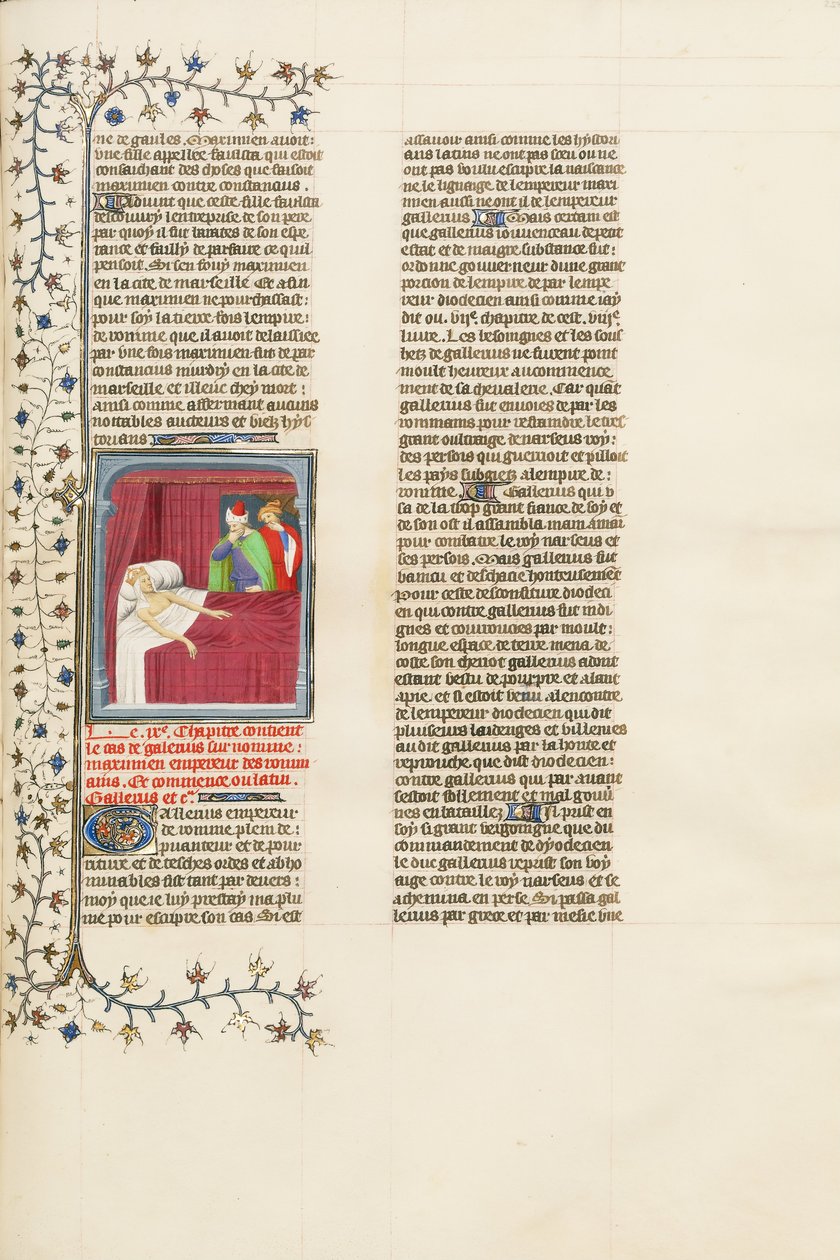 ne de gaules. Maximien auoit:
vne fille appellee fausta qui estoit
consachant des choses que faisoit
maximien contre constancius.
Aduint que ceste fille fausta
descouury lentreprise de son pere
par quoy il fut tarates de son espe
rance et failly de parfaire ce quil
pensoit. Si sen fouy maximien
en la cite de marseille Et afin
que maximien ne pourchassast:
pour soy la tierce fois lempire:
de romme que il auoit delaissiee
par vne fois maximien fut de par
constancius murdry en la cite de
marseille et illeuc chey mort:
ainsi comme afferment aucuns
nottables aucteurs et vielz hys
torians
Le .ixe. Chapitre contient
le cas de galerius surnomme:
maximien empereur des romm
ains. Et commence ou latin.
Gallerius et ca.
Gallerius empereur
de romme plein de:
puanteur et de pour
riture et de tesches ordes et abho
minables fist tant par deuers:
moy que ie luy prestay ma plu
me pour escripre son cas Si est
assauoir ainsi comme les hystori
ans latins ne ont pas sceu ou ne
ont pas voulu escripre la naissance
ne le lignaige de lempereur maxi
mien aussi ne ont il de lempereur
gallerius Mais certain est
que gallerius iouuenceau de petit
estat et de maigre substance fut:
ordonne gouuerneur dune grant
porcion de lempire de par lempe
reur dioclecien ainsi comme iay
dit ou. viie. chapitre de cest. viije.
liure. Les besoingnes et les soub
hetz de gallerius ne furent point
moult heureux au commence
ment de sa cheualerie. Car quant
gallerius fut enuoies de par les
rommains pour restraindre le tres
grant oultraige de narseus roy:
des persois qui guerrioit et pilloit
les pays subgietz a lempire de:
romme. Gallerius qui v
sa de la trop grant fiance de soy et
de son ost il assembla main a mai
pour combatre le roy narseus et
ses persois. Mais gallerius fut
vaincu et deschacie honteusement
Pour ceste desconfiture diocleci
en qui contre gallerius fut indi
gnes et courrouciés par moult:
longue espace de terre mena de
coste son chariot gallerius adont
estant vestu de pourpre et alant
a pie et si estoit venu a lencontre
de lempereur dioclecien qui dit
pluiseurs laidenges et villenies
au dit gallerius par la honte et
reprouche que dist dioclecien:
contre gallerius qui par auant
sestoit follement et mal gouu
nes en bataillez Il prist en
soy si grant vergoingne que du
commandement de dyoclecien
le duc gallerius reprist son voy
aige contre le roy narseus et se
achemina en perse. Si passa gal
lerius par grece et par mesie vne